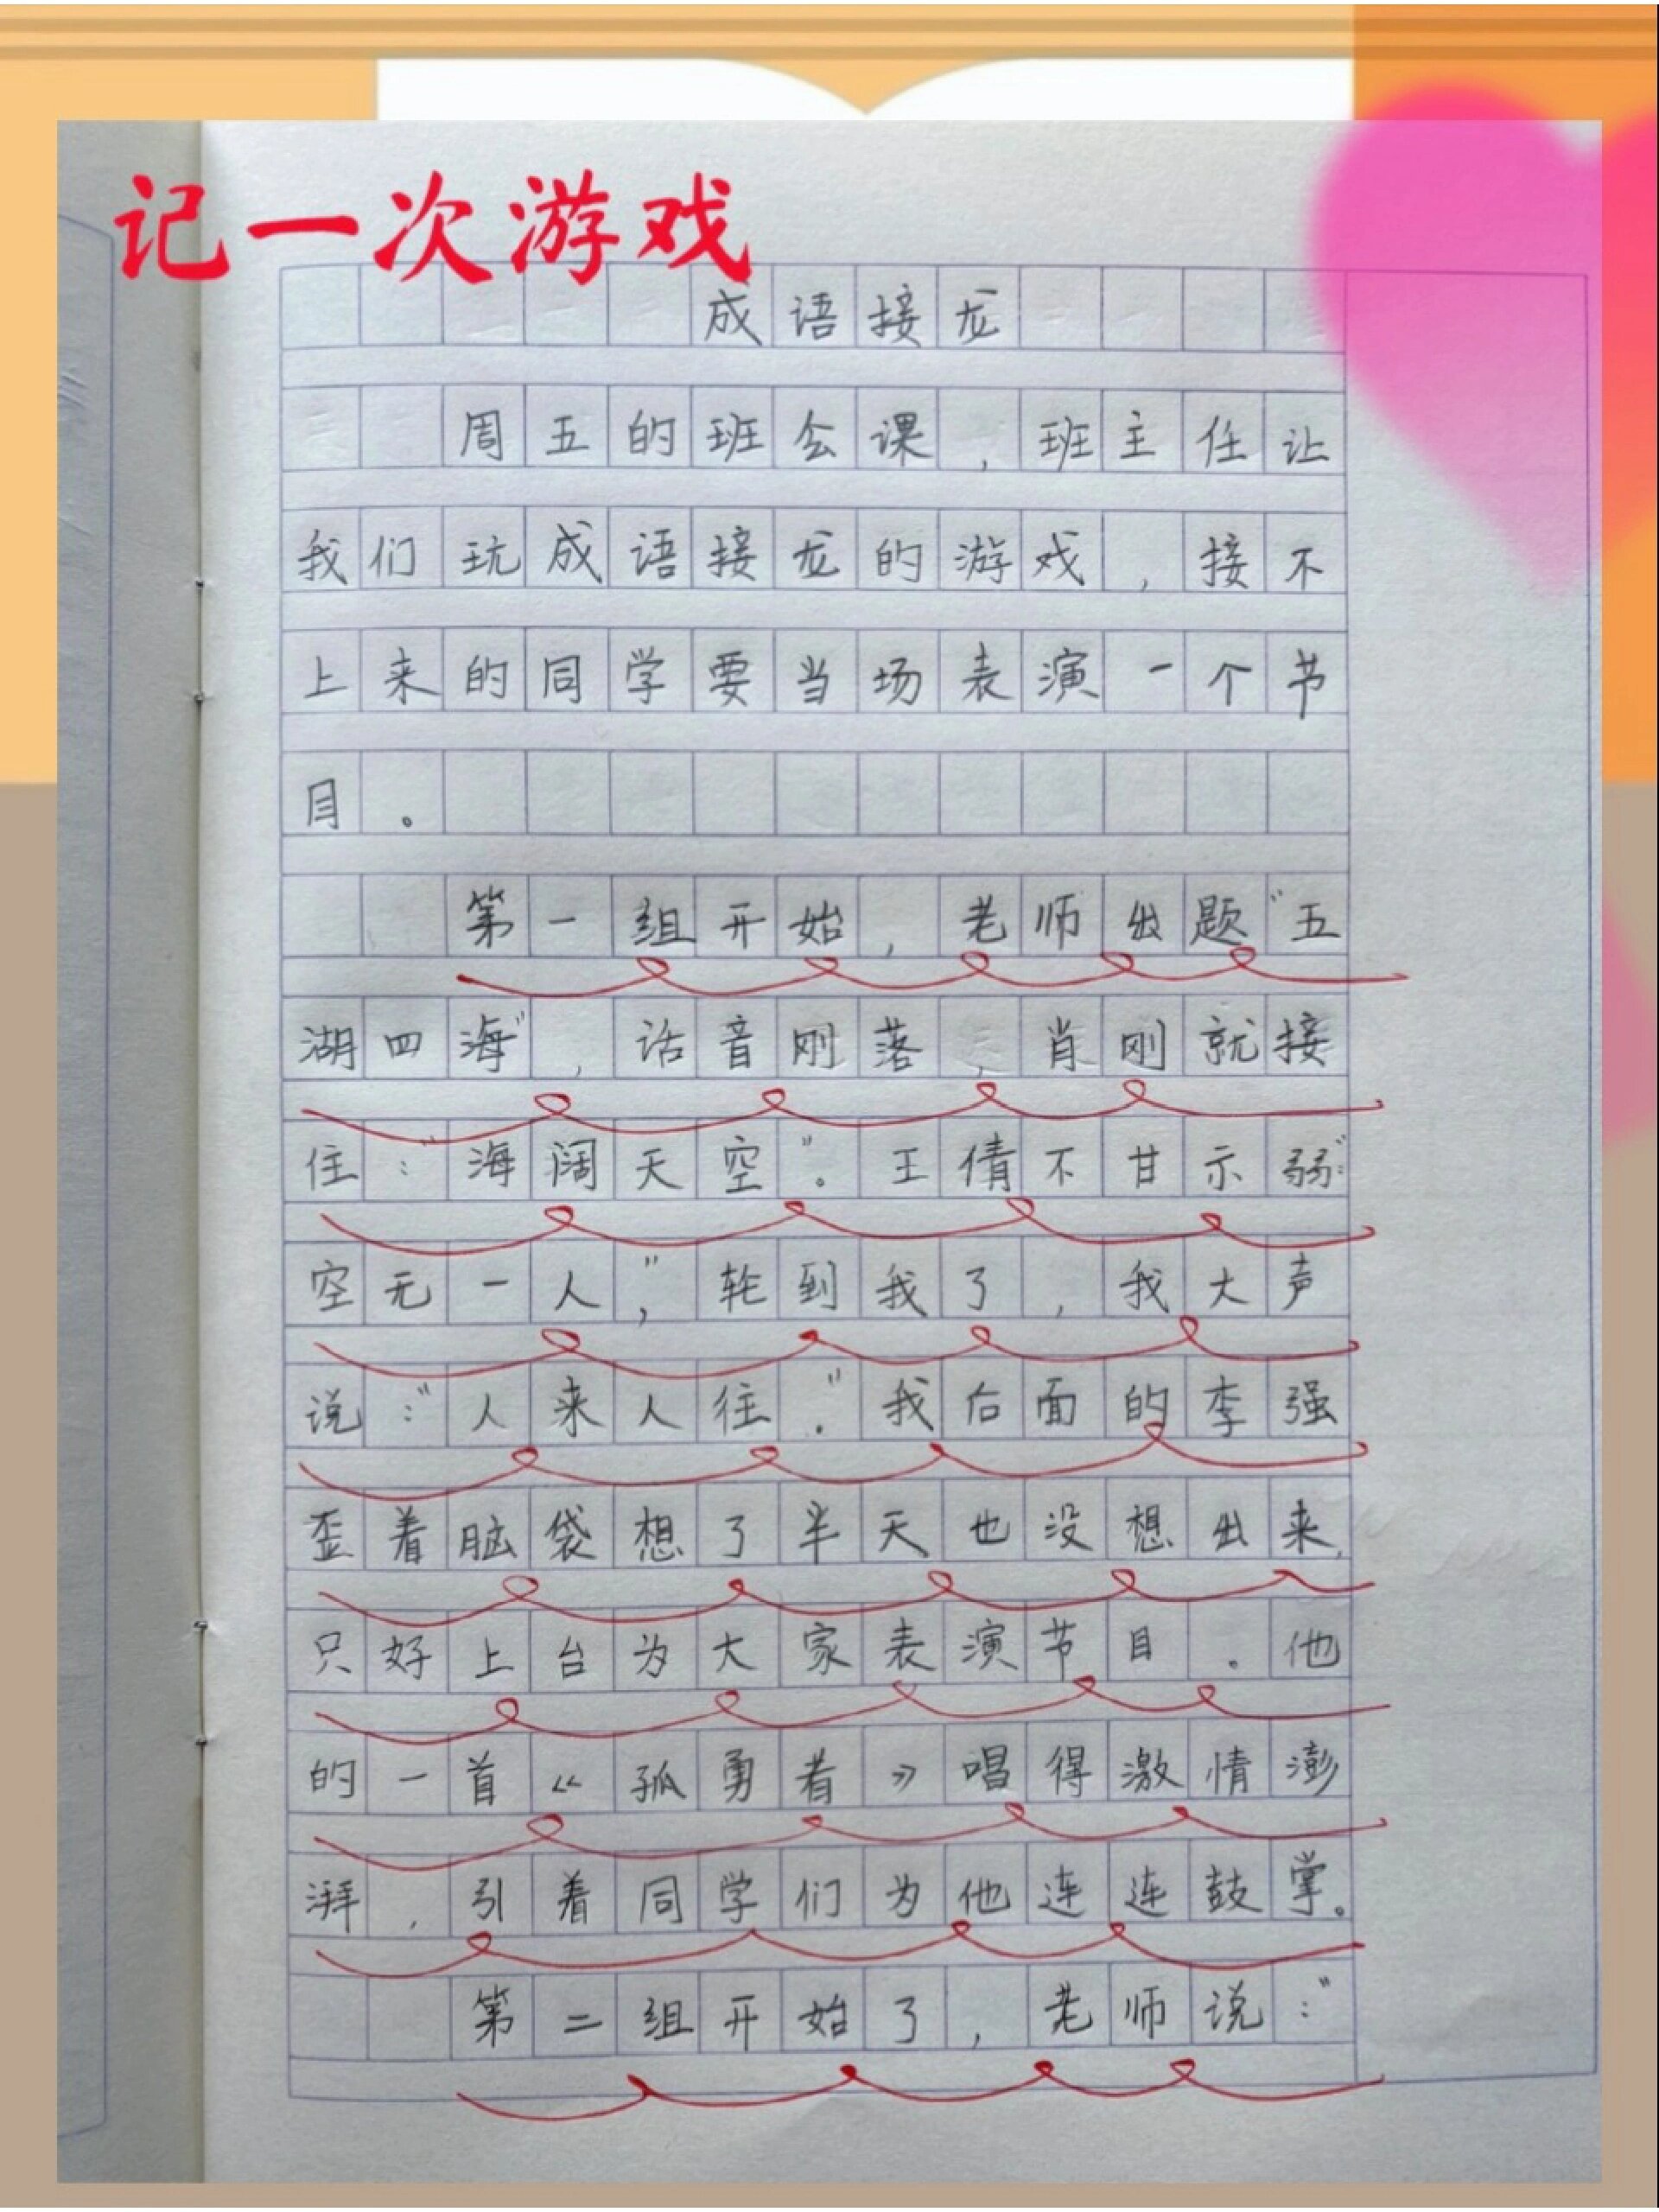 记一次游戏
成语接龙
周五的班会课，班主任让
我们玩成语接龙的游戏，接不
上来的同学要当场表演一个节
目。
第一组开始，老师出题“五
湖四海”，话音刚落，肖刚就接
住：“海阔天空”。王倩不甘示弱：“
空无一人，”轮到我了，我大声
说：“人来人往．”我后面的李强
歪着脑袋想了半天也没想出来，
只好上台为大家表演节目。他
的一首《孤勇者》唱得激情澎
湃，引着同学们为他连连鼓掌。
第二组开始了，老师说：“